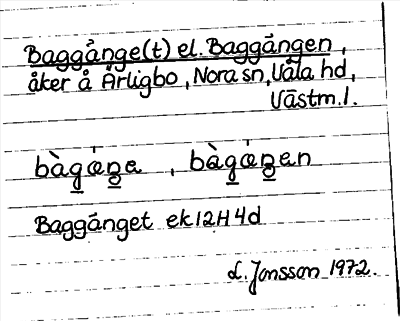 Baggånge(t) el. Baggången,
åker å Ärligbo, Nora sn, Våla hd,
Västm.l.
bàgáŋe, bàgáŋen
Baggånget ek 12H4d
L. Jonsson 1972.